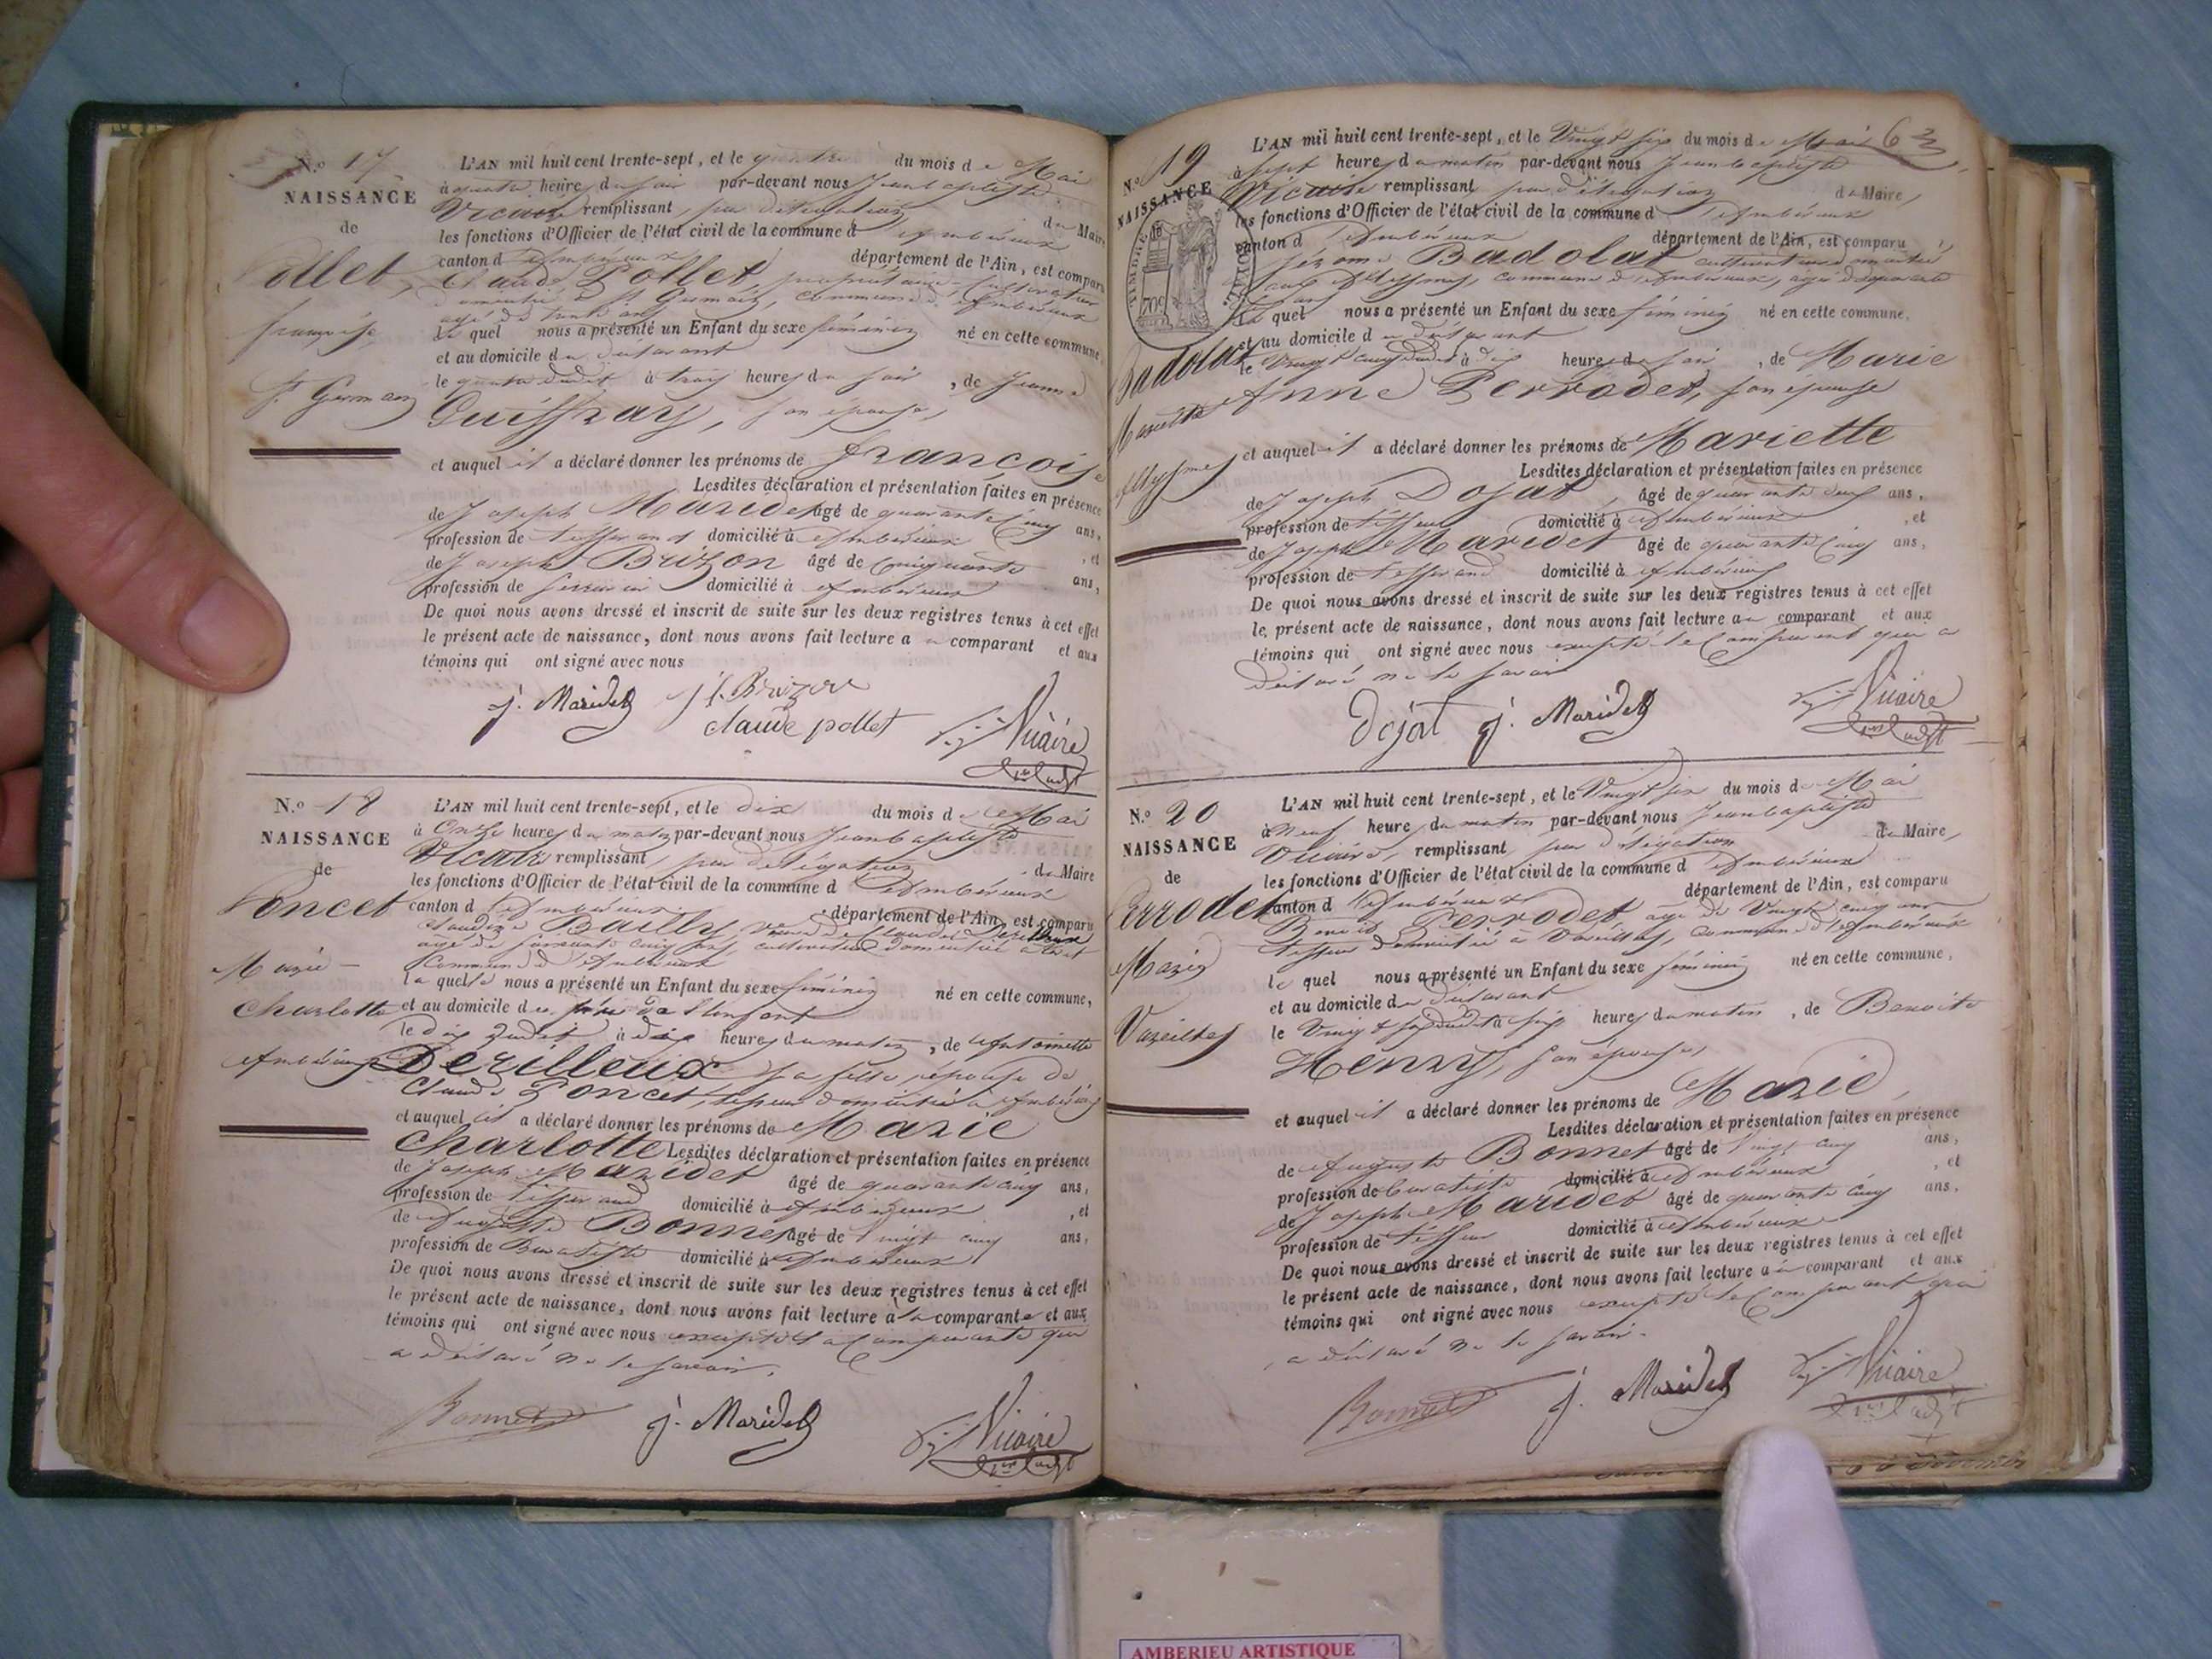 N.o 17
NAISSANCE
de
Pollet
françoise
St Germain
L'AN mil huit cent trente-sept, et le quatre du mois de Mai
à quatre heures du soir par-devant nous Jean baptiste
Vicaire remplissant par délégation du Maire
les fonctions d'Officier de l'état civil de la commune d'Ambérieux
canton d'Ambérieux département de l'Ain, est comparu
Claude Pollet, propriétaire-Cultivateur
domicilié à St Germain, commune d'Ambérieux
agé de trente ans
Le quel nous a présenté un Enfant du sexe féminin né en cette commune,
et au domicile du déclarant
le quatre dudit à trois heures du soir, de Jeanne
Guiffray, son épouse,
et auquel il a déclaré donner les prénoms de françoise
Lesdites déclaration et présentation faites en présence
de Joseph Maridet âgé de quarante cinq ans,
profession de tisserand domicilié à Ambérieux, et
de Joseph Brizon âgé de Cinquante ans,
profession de domicilié à Ambérieux
De quoi nous avons dressé et inscrit de suite sur les deux registres tenus à cet effet
le présent acte de naissance, dont nous avons fait lecture au comparant et aux
témoins qui ont signé avec nous
j. Maridet J. Brizon
claude pollet Vicaire
N.o 18
NAISSANCE
de
Poncet
Marie
Charlotte
Ambérieux
L'AN mil huit cent trente-sept, et le dix du mois de Mai
à Onze heures du matin par-devant nous Jean baptiste
Vicaire remplissant par délégation du Maire
les fonctions d'Officier de l'état civil de la commune d'Ambérieux
canton d'Ambérieux département de l'Ain, est comparu
Claudine Bailly, Veuve de Claude Derilleux
agé de soixante cinq ans, cultivatrice domiciliée
commune d'Ambérieux
la quelle nous a présenté un Enfant du sexe féminin né en cette commune,
et au domicile du père de l'enfant
le dix dudit à dix heures du matin, de Antoinette
Derilleux sa fille, épouse de
Claude Poncet, tisseur domicilié à Ambérieux
et auquel a déclaré donner les prénoms de Marie
Charlotte Lesdites déclaration et présentation faites en présence
de Joseph Maridet âgé de quarante cinq ans,
profession de tisserand domicilié à Ambérieux, et
de Auguste Bonnet âgé de Vingt cinq ans,
profession de Buraliste domicilié à Ambérieux
De quoi nous avons dressé et inscrit de suite sur les deux registres tenus à cet effet
le présent acte de naissance, dont nous avons fait lecture à la comparante et aux
témoins qui ont signé avec nous excepté la Comparante qui
a déclaré ne le savoir.
Bonnet j. Maridet Vicaire
63
N.o 19
NAISSANCE
TIMBRE ROYAL
70c
Badolat
Mariette
Allymes
L'AN mil huit cent trente-sept, et le Vingt six du mois de Mai
à sept heures du matin par-devant nous Jean baptiste
Vicaire remplissant par délégation du Maire,
les fonctions d'Officier de l'état civil de la commune d'Ambérieux
canton d'Ambérieux département de l'Ain, est comparu
Jérome Badolat cultivateur domicilié
aux Allymes, commune d'Ambérieux, agé de quarante
ans
Le quel nous a présenté un Enfant du sexe féminin né en cette commune,
et au domicile du déclarant
le Vingt cinq dudit à dix heures du soir, de Marie
Anne Perrodet, son épouse
et auquel il a déclaré donner les prénoms de Mariette
Lesdites déclaration et présentation faites en présence
de Joseph Dojat, âgé de quarante deux ans,
profession de tisseur domicilié à Ambérieux, et
de Joseph Maridet âgé de quarante Cinq ans,
profession de tisserand domicilié à Ambérieux
De quoi nous avons dressé et inscrit de suite sur les deux registres tenus à cet effet
le présent acte de naissance, dont nous avons fait lecture au comparant et aux
témoins qui ont signé avec nous excepté le Comparant qui a
déclaré ne le savoir
dojat j. Maridet Vicaire
N.o 20
NAISSANCE
de
Perrodet
Marie
Vareilles
L'AN mil huit cent trente-sept, et le Vingt six du mois de Mai
à Neuf heures du matin par-devant nous Jean baptiste
Vicaire, remplissant par délégation du Maire,
les fonctions d'Officier de l'état civil de la commune d'Ambérieux
canton d'Ambérieux département de l'Ain, est comparu
Benoit Perrodet, agé de Vingt cinq ans
tisseur domicilié à Vareilles, commune d'Ambérieux
le quel nous a présenté un Enfant du sexe féminin né en cette commune,
et au domicile du déclarant
le Vingt six dudit à six heures du matin, de Benoite
Henry, son épouse,
et auquel il a déclaré donner les prénoms de Marie,
Lesdites déclaration et présentation faites en présence
de Auguste Bonnet âgé de Vingt cinq ans,
profession de buraliste domicilié à Ambérieux, et
de Joseph Maridet âgé de quarante cinq ans,
profession de tisseur domicilié à Ambérieux
De quoi nous avons dressé et inscrit de suite sur les deux registres tenus à cet effet
le présent acte de naissance, dont nous avons fait lecture au comparant et aux
témoins qui ont signé avec nous excepté le Comparant qui
a déclaré ne le savoir.
Bonnet j. Maridet Vicaire
AMBERIEU ARTISTIQUE